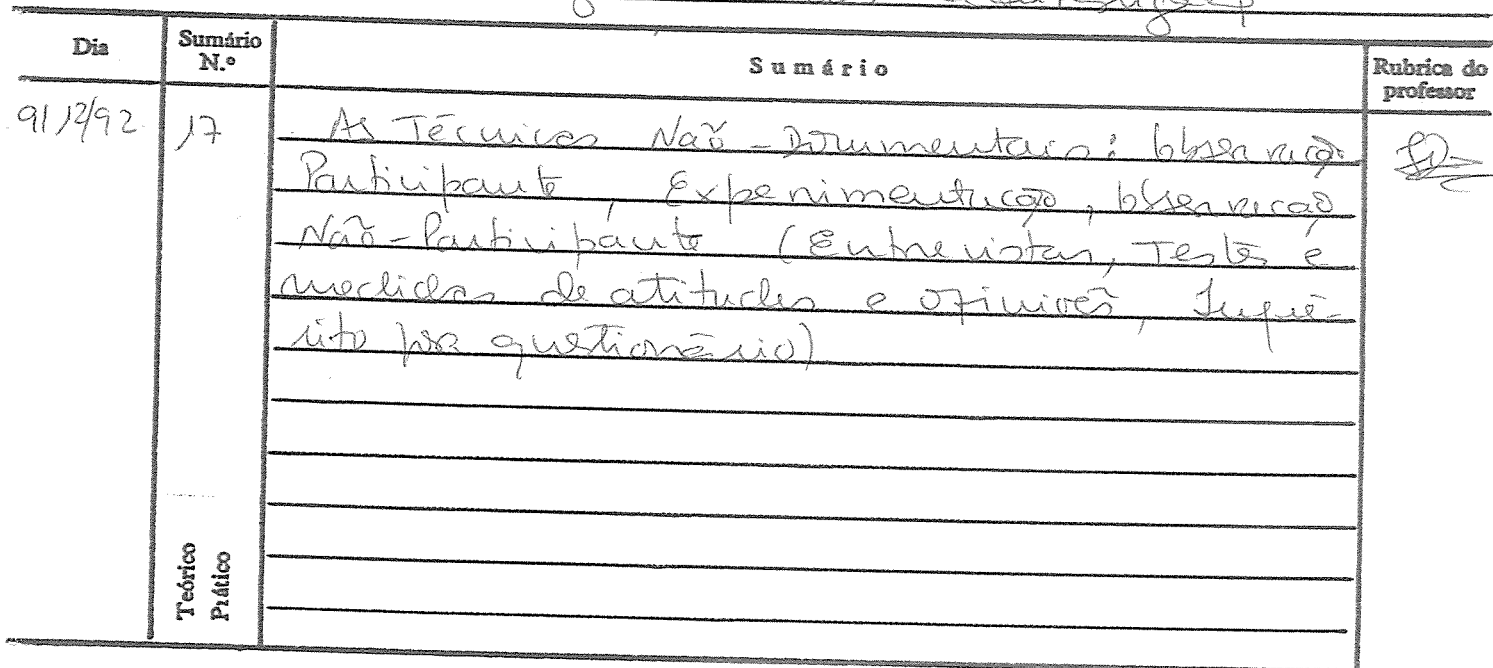 Dia
Sumário N.º
Sumário
Rubrica do professor
9/12/92
17
As Técnicas Não-Documentais: Observação
Participante, Experimentação, Observação
Não-Participante (Entrevistas, Testes e
medidas de atitudes e opiniões, Inqué-
rito por questionário)
Teórico
Prático